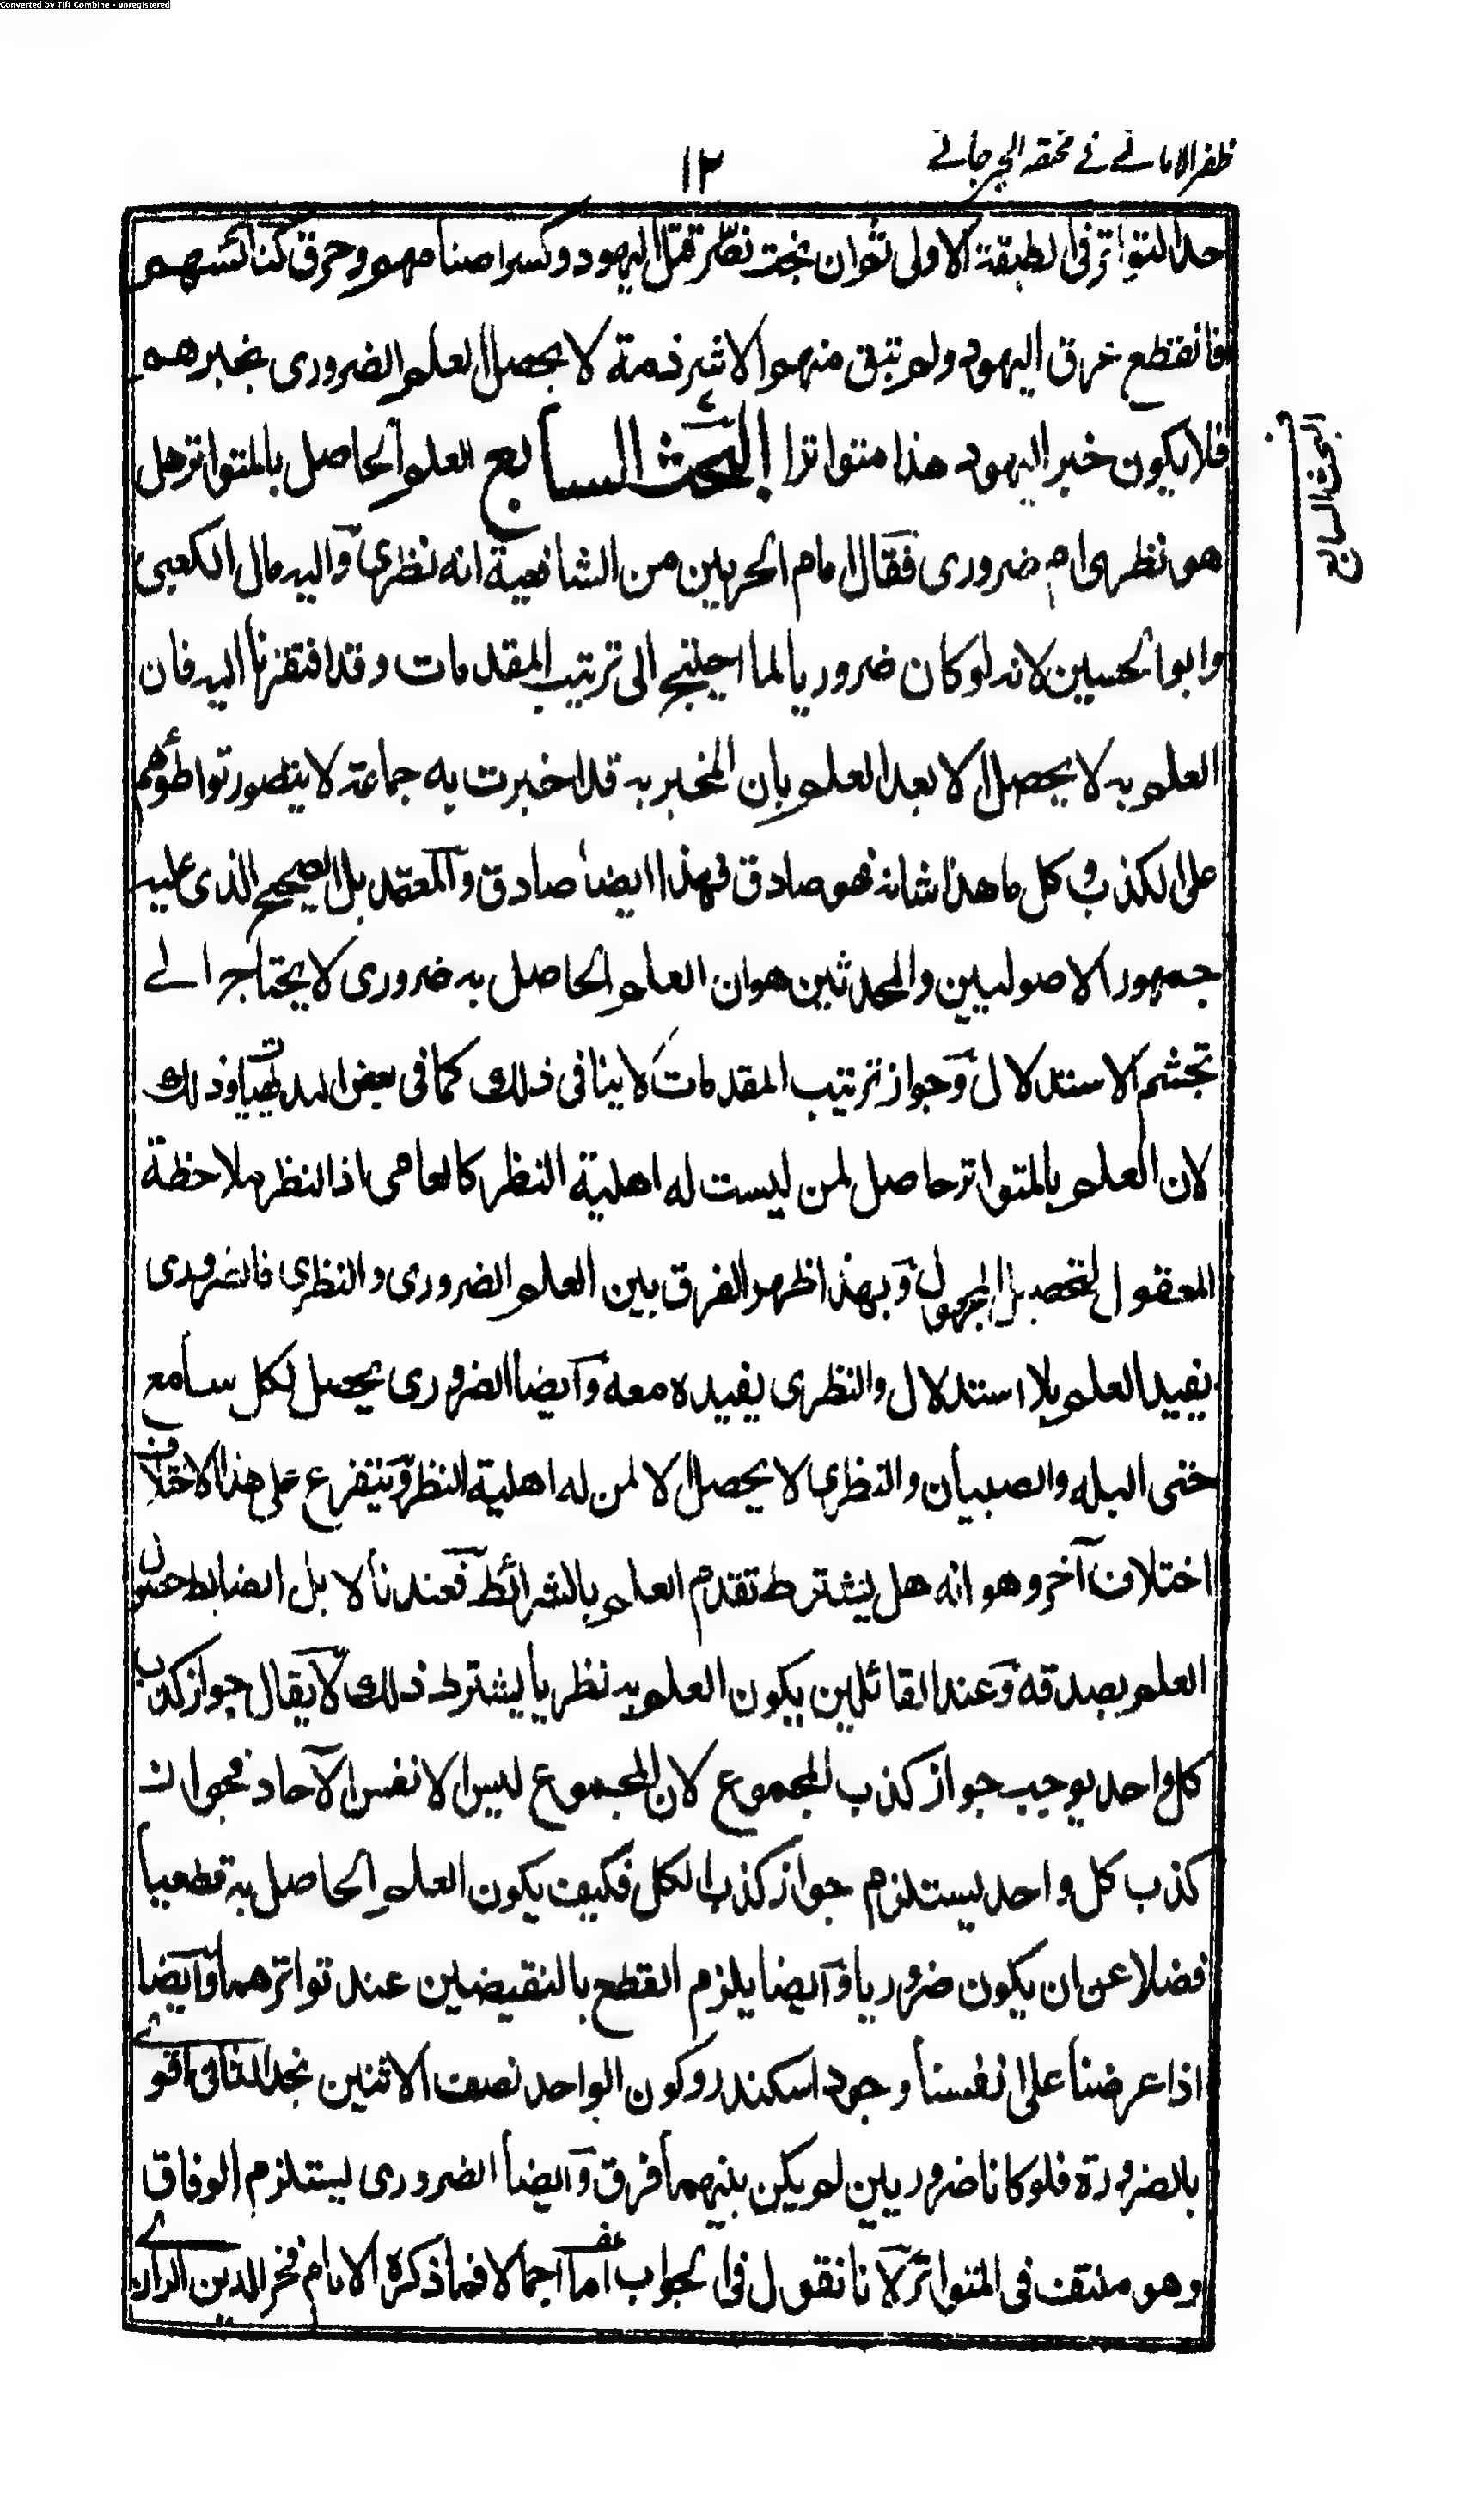 Converted by Tiff Combine - unregistered
ظفر الاماني في مختصر الجرجاني
١٢
حد التواتر في الطبقة الاولى ثم ان بخت نصر قتل اليهود وكسر اصنامهم وحرق كنائسهم
فانقطع عرق اليهود ولم تبق منهم الا شرذمة لا يحصل العلم الضروري بخبرهم
فلا يكون خبر اليهود هذا متواترا البحث السابع العلم الحاصل بالمتواتر هل
هو نظري ام ضروري فقال امام الحرمين من الشافعية انه نظري واليه مال الكعبي
وابو الحسين لانه لو كان ضروريا لما احتيج الى ترتيب المقدمات وقد افتقرنا اليه فان
العلم به لا يحصل الا بعد العلم بان المخبر به قد اخبرت به جماعة لا يتصور تواطؤهم
على الكذب و كل ما هذا شانه فهو صادق فهذا ايضا صادق والمعتمد بل الصحيح الذي عليه
جمهور الاصوليين والمحدثين هو ان العلم الحاصل به ضروري لا يحتاج الى
تجشم الاستدلال وجواز ترتيب المقدمات لا ينافي ذلك كما في بعض البديهيات وذلك
لان العلم بالمتواتر حاصل لمن ليست له اهلية النظر كالعامي اذ النظر ملاحظة
المعقول لتحصيل المجهول وبهذا ظهر الفرق بين العلم الضروري والنظري فالضروري
يفيد العلم بلا استدلال والنظري يفيده معه وايضا الضروري يحصل لكل سامع
حتى البله والصبيان والنظري لا يحصل الا لمن له اهلية النظر ويتفرع على هذا الاختلاف
اختلاف آخر وهو انه هل يشترط تقدم العلم بالشرائط فعندنا لا بل الضابط حصول
العلم بصدقه وعند القائلين بكون العلم به نظريا يشترط ذلك لا يقال جواز كذب
كل واحد يوجب جواز كذب المجموع لان المجموع ليس الا نفس الآحاد فجواز
كذب كل واحد يستلزم جواز كذب الكل فكيف يكون العلم الحاصل به قطعيا
فضلا عن ان يكون ضروريا وايضا يلزم القطع بالنقيضين عند تواترهما وايضا
اذا عرضنا على انفسنا وجود اسكندر وكون الواحد نصف الاثنين نجد الثاني اقوى
بالضرورة فلو كانا ضروريين لم يكن بينهما فرق وايضا الضروري يستلزم الوفاق
وهو منتف في المتواتر لانا نقول في الجواب اما اجمالا فما ذكره الامام فخر الدين الرازي